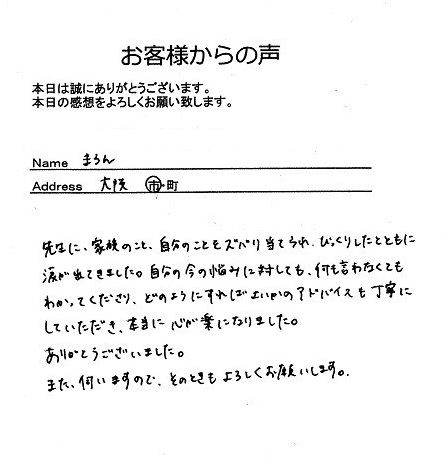 お客様からの声
本日は誠にありがとうございます。
本日の感想をよろしくお願い致します。
Name まろん
Address 大阪 市・町
先生に、家族のこと、自分のことをズバリ当てられ、びっくりしたとともに
涙が出てきました。自分の今の悩みに対しても、何も言わなくても
わかってくださり、どのようにすればよいかのアドバイスも丁寧に
していただき、本当に心が楽になりました。
ありがとうございました。
また、伺いますので、そのときもよろしくお願いします。